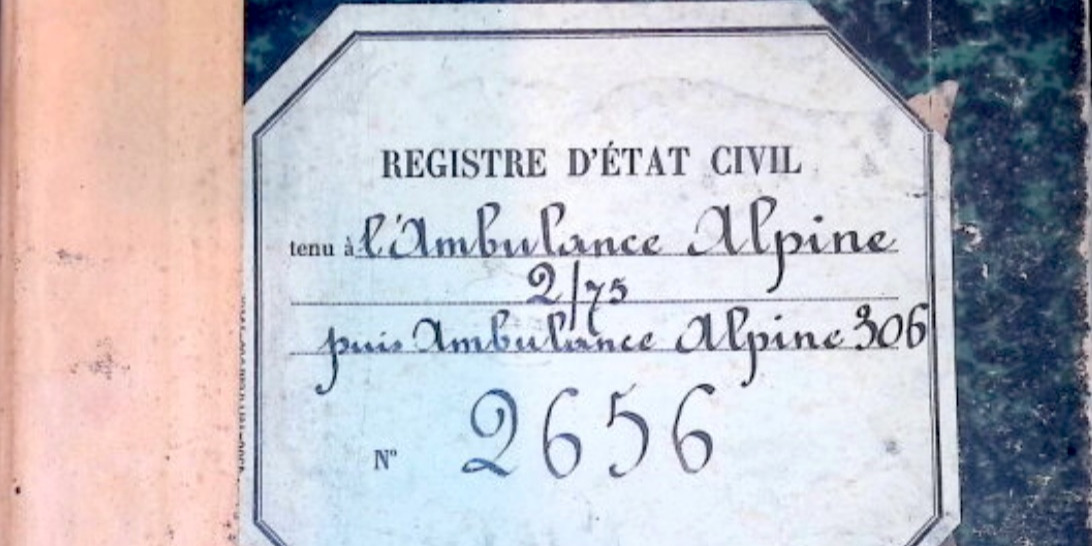 REGISTRE D'ÉTAT CIVIL
tenu à l'Ambulance Alpine
2/75
puis Ambulance Alpine 306
N° 2656